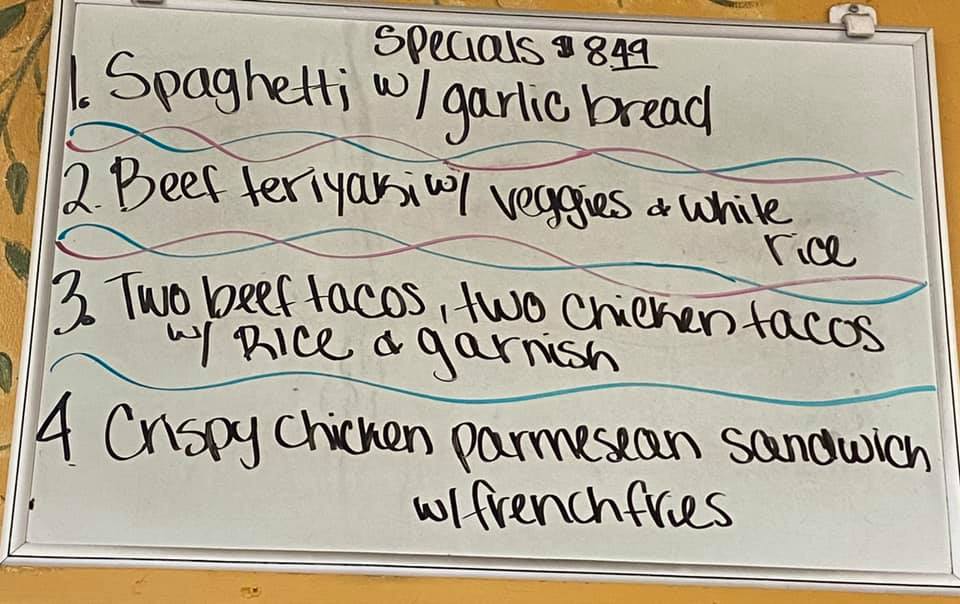 Specials $8.49
1. Spaghetti w/ garlic bread
2. Beef teriyaki w/ veggies & white
rice
3. Two beef tacos, two chicken tacos
w/ Rice & garnish
4 Crispy chicken parmesean sandwich
w/ french fries